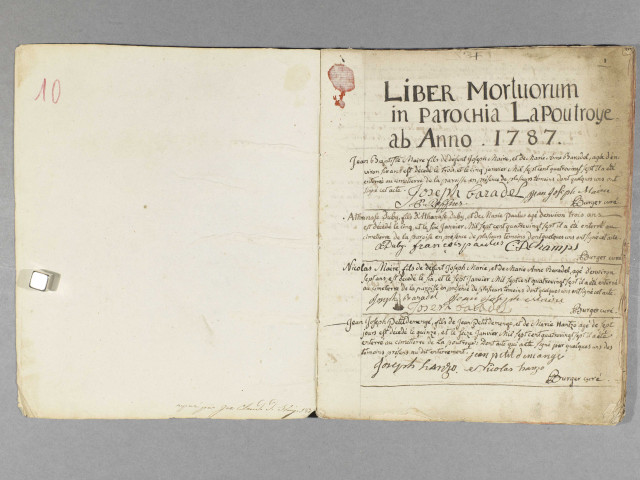 10
LIBER Mortuorum
in PAROCHIA LaPoutroye
ab Anno . 1787.
Jean Baptiste Maire fils de defunt Joseph Maire, et de Marie Anne Baradel, agé d'en
viron est decédé le trois et le cinq janvier Mil sept cent quatrevingt sept il a été
enterré au cimetierre de la paroisse en presence de plusieurs temoins dont quelques uns ont
signé cet acte. Joseph baradel jean Joseph Maire
Burger curé.
Athanase Duby, fils d'Athanase Duby, et de Marie Paulus agé d'environ trois ans
est decédé le cinq, et le six Janvier, Mil sept cent quatrevingt sept il a été enterré au
cimetierre de la paroisse en presence de plusieurs temoins dont quelques uns ont signé cet acte
Duby francois paulus
Burger curé
Nicolas Maire, fils de defunt Joseph Maire, et de Marie Anne Baradel, agé d'environ
sept ans est decédé le six, et le sept Janvier Mil sept cent quatrevingt sept il a été enterré
au cimetierre de la paroisse en presence de plusieurs temoins dont quelques uns ont signé cet acte.
joseph Baradel jean joseph
Joseph baradel Burger curé.
Jean Joseph Petitdemenge, fils de Jean Petitdemenge, et de Marie Hanzo agé de sept
jours est decédé le quinze, et le seize Janvier Mil sept cent quatrevingt sept il a été
enterré au cimetierre de La poutroye; dont acte qui a été signé par quelques uns des
temoins presens au dit enterrement. jean petit demange
Joseph hanzo. et Nicolas hanzo
Burger curé.